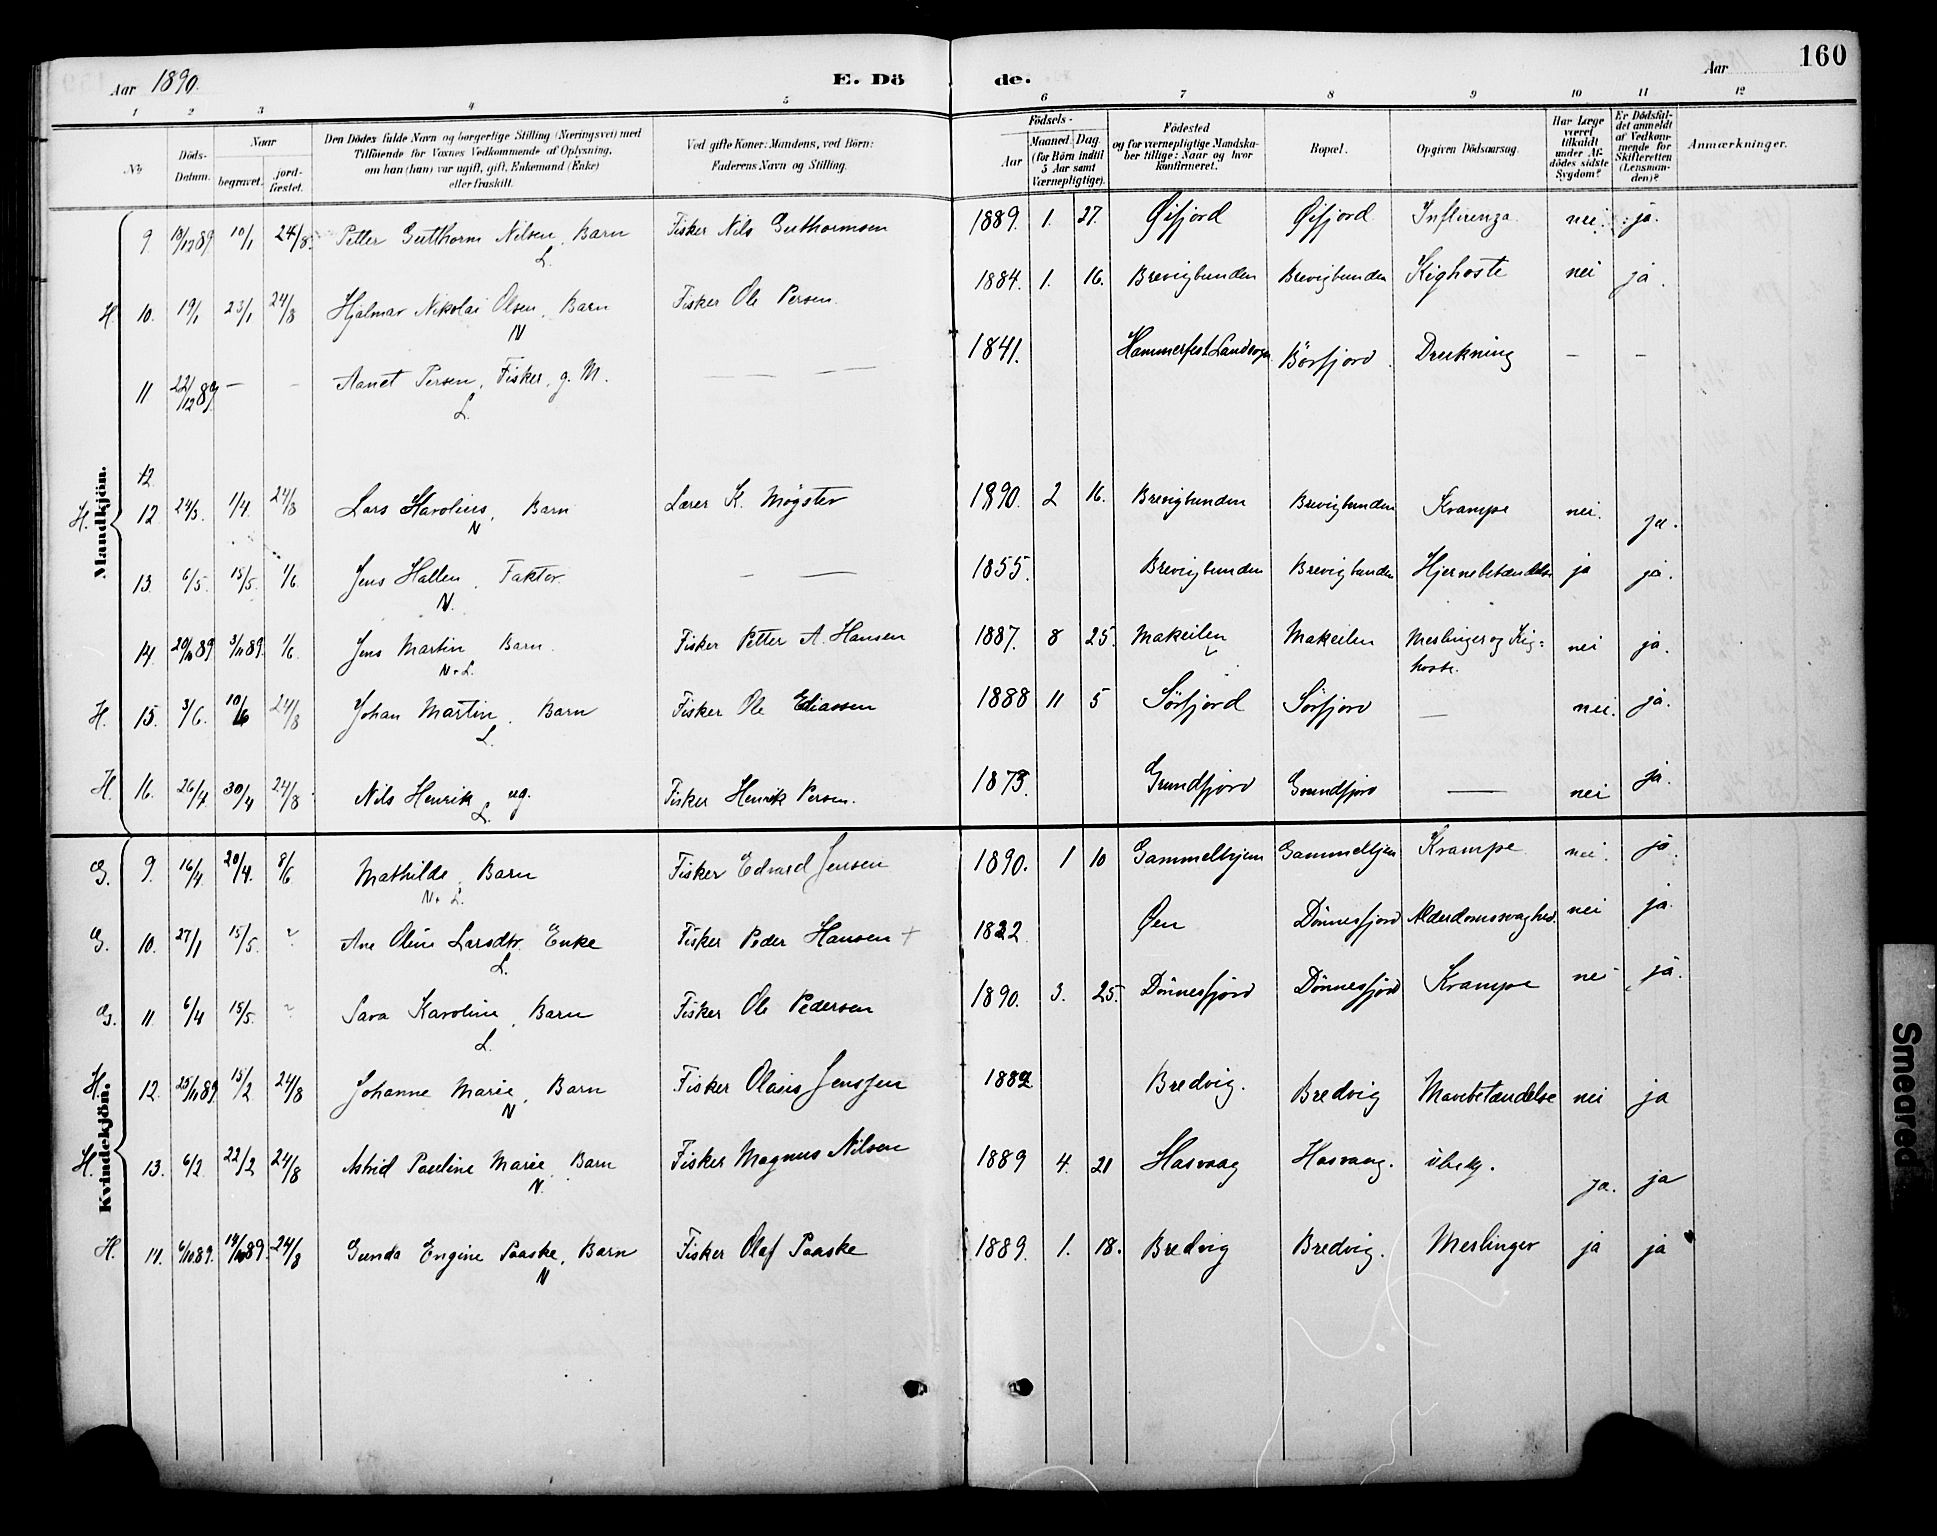 160
Aar 1890.
E. Dö de.
Aar
1 2 3 4 5 6 7 8 9 10 11 12
No
Döds-Datum.
Naar
begravet.
jord-fæstet.
Den Dödes fulde Navn og borgerlige Stilling (Næringsvei) med
Tilföiende for Voxnes Vedkommende af Oplysning,
om han (hun) var ugift, gift, Enkemand (Enke)
eller fraskilt.
Ved gifte Koner: Mandens, ved Börn:
Faderens Navn og Stilling.
Födsels-
Aar
Maaned Dag
(for Börn indtil
5 Aar samt
Værnepligtige).
Födested
og for værnepligtige Mandska-
ber tillige: Naar og hvor
konfirmeret.
Bopæl.
Opgiven Dödsaarsag.
Har Læge
været
tilkaldt
under Af-
dödes sidste
Sygdom?
Er Dödsfal-
det anmeldt
af Vedkom-
mende for
Skifteretten
(Lensman-
den)?
Anmærkninger.
Mandkjön.
9 18/12 89 10/1 24/8. Petter Gutthorm Nilsen, Barn L. Fisker Nils Gutthormsen 1889. 1. 27. Øifjord Øifjord Influenza nei. ja.
H. 10. 19/1 23/1 24/8 Hjalmar Nikolai Olsen, Barn N Fisker Ole Persen. 1884. 1. 16. Brevigbunden Brevigbunden Kighoste nei ja.
11 22/12 89 — – Aanet Persen, Fisker, g. M. L. — — 1841. Hammerfest Landsogn Börfjord. Drukning – –
12.
H. 12 24/3. 1/4. 24/8 Lars Karolius, Barn N Lærer K. Møgster 1890. 2 16. Brevigbunden Brevigbunden Krampe nei. ja.
13. 6/5. 15/5. 1/6. Jens Hallen, Faktor N. – — 1855. Brevigbunden Brevigbunden Hjernebetændelse ja ja.
14. 29/11 89 3/11 89. 1/6. Jens Martin Barn. N+L. Fisker Petter A. Hansen 1887. 8 25. Makeilen Makeilen Meslinger og Kig=
hoste. nei ja.
H. 15. 3/6. 10/6 24/8 Johan Martin, Barn L. Fisker Ole Eliassen 1888 11 5 Sörfjord Sörfjord — nei. ja.
H. 16. 26/4 30/4 24/8 Nils Henrik ug. L. Fisker Henrik Persen. 1873. Grundfjord Grundfjord — nei ja.
Kvindekjön.
G. 9. 16/4. 20/4. 8/6 Mathilde, Barn N+ L. Fisker Edvard Jensen 1890. 1 10 Gammelhjem Gammelhjem Krampe nei. ja.
G. 10. 27/1 15/5. ~ Ane Oline Larsdtr. Enke L. Fisker Peder Hansen + 1822 Øen Dönnesfjord Alderdomssvaghed nei ja.
G. 11. 6/4 15/5. ~ Sara Karoline, Barn L. Fisker Ole Pedersen 1890. 3. 25. Dönnesfjord Dönnesfjord Krampe nei ja.
H. 12. 25/11 89 15/2 24/8 Johanne Marie, Barn N Fisker Olaus Jenssen 1882 Bredvig. Bredvig Mavebetændelse nei ja
H. 13. 6/2 22/2 24/8 Astrid Pauline Marie, Barn N. Fisker Magnus Nilsen 1889 4. 21 Hasvaag Hasvaag. ubekj. ja. ja
H. 14. 6/10 89. 14/10 89. 24/8 Gunda Engine Paaske, Barn N Fisker Olaf Paaske 1889. 1. 18. Bredvig Bredvig. Meslinger ja ja
Smeared